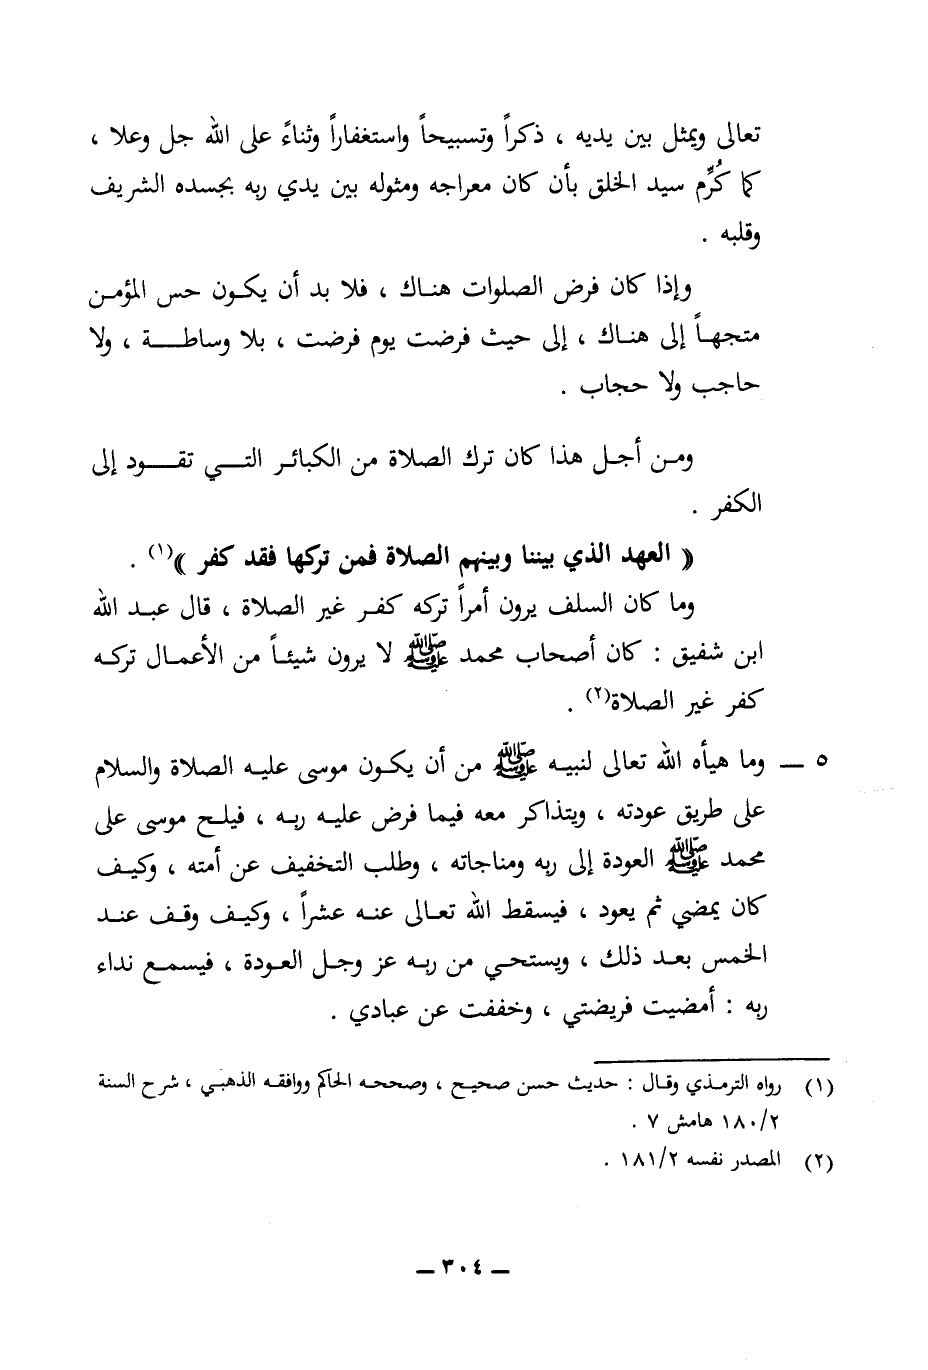 تعالى ويمثل بين يديه ، ذكراً وتسبيحاً واستغفاراً وثناءً على الله جل وعلا ،
كما كُرِّم سيد الخلق بأن كان معراجه ومثوله بين يدي ربه بجسده الشريف
وقلبه .
وإذا كان فرض الصلوات هناك ، فلا بد أن يكون حس المؤمن
متجهاً إلى هناك ، إلى حيث فرضت يوم فرضت ، بلا وساطة ، ولا
حاجب ولا حجاب .
ومن أجل هذا كان ترك الصلاة من الكبائر التي تقود إلى
الكفر .
« العهد الذي بيننا وبينهم الصلاة فمن تركها فقد كفر »(١) .
وما كان السلف يرون أمراً تركه كفر غير الصلاة ، قال عبد الله
ابن شفيق : كان أصحاب محمد ﷺ لا يرون شيئاً من الأعمال تركه
كفر غير الصلاة(٢) .
٥ ــ وما هيأه الله تعالى لنبيه ﷺ من أن يكون موسى عليه الصلاة والسلام
على طريق عودته ، ويتذاكر معه فيما فرض عليه ربه ، فيلح موسى على
محمد ﷺ العودة إلى ربه ومناجاته ، وطلب التخفيف عن أمته ، وكيف
كان يمضي ثم يعود ، فيسقط الله تعالى عنه عشراً ، وكيف وقف عند
الخمس بعد ذلك ، ويستحي من ربه عز وجل العودة ، فيسمع نداء
ربه : أمضيت فريضتي ، وخففت عن عبادي .
(١) رواه الترمذي وقال : حديث حسن صحيح ، وصححه الحاكم ووافقه الذهبي ، شرح السنة
١٨٠/٢ هامش ٧ .
(٢) المصدر نفسه ١٨١/٢ .
ــ ٣٠٤ ــ